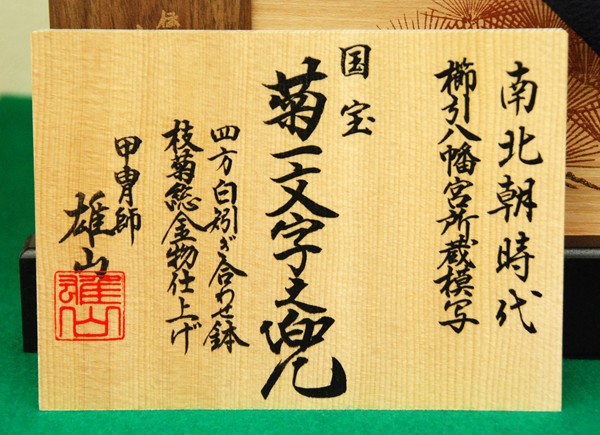 南北朝時代
櫛引八幡宮所蔵模写
国宝
菊一文字之兜
四方白矧ぎ合わせ鉢
枝菊総金物仕上げ
甲冑師
雄山
雄山